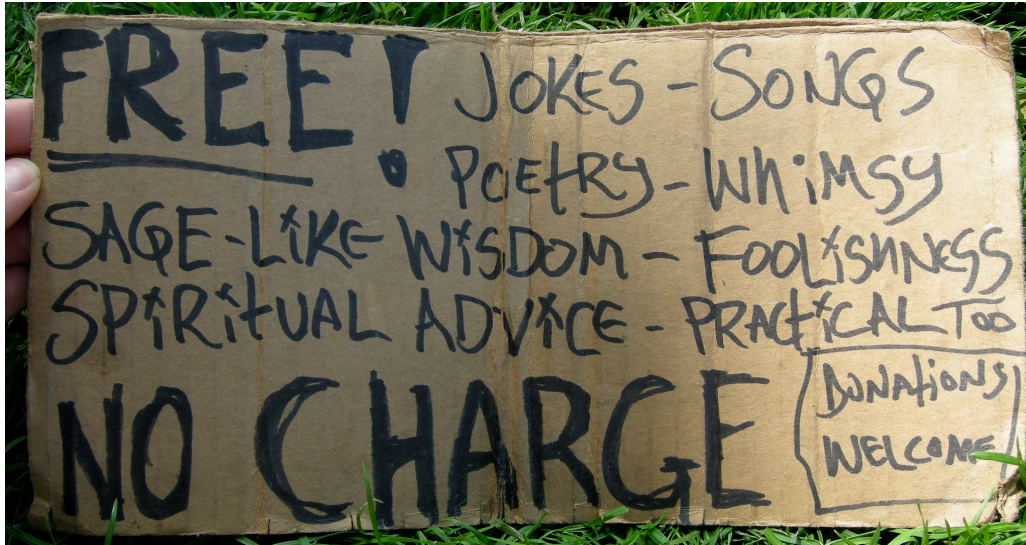 FREE! JOKES - SONGS
POETRY - WHIMSY
SAGE-LIKE WISDOM - FOOLISHNESS
SPIRITUAL ADVICE - PRACTICAL TOO
NO CHARGE
DONATIONS
WELCOME